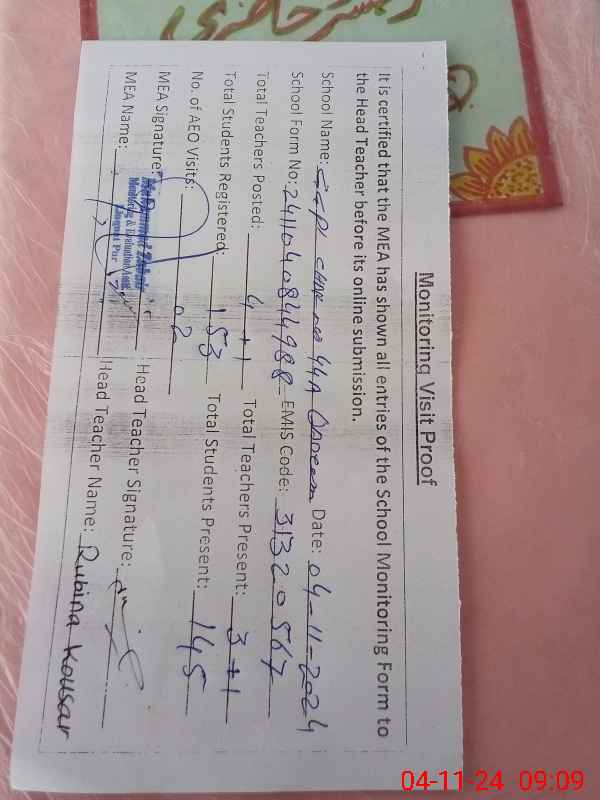 رجسٹر حاضری
Monitoring Visit Proof
It is certified that the MEA has shown all entries of the School Monitoring Form to
the Head Teacher before its online submission.
School Name: GGPS Chak no 44A Date: 04-11-2024
School Form No: 2411040844988 EMIS Code: 31320567
Total Teachers Posted: 4+1 Total Teachers Present: 3+1
Total Students Registered: 153 Total Students Present: 145
No. of AEO Visits: 02
MEA Signature: Head Teacher Signature:
Muhammad Zubair
Monitoring & Evaluation Assistt
Liaquat Pur
MEA Name: Head Teacher Name: Rubina Kousar
04-11-24 09:09